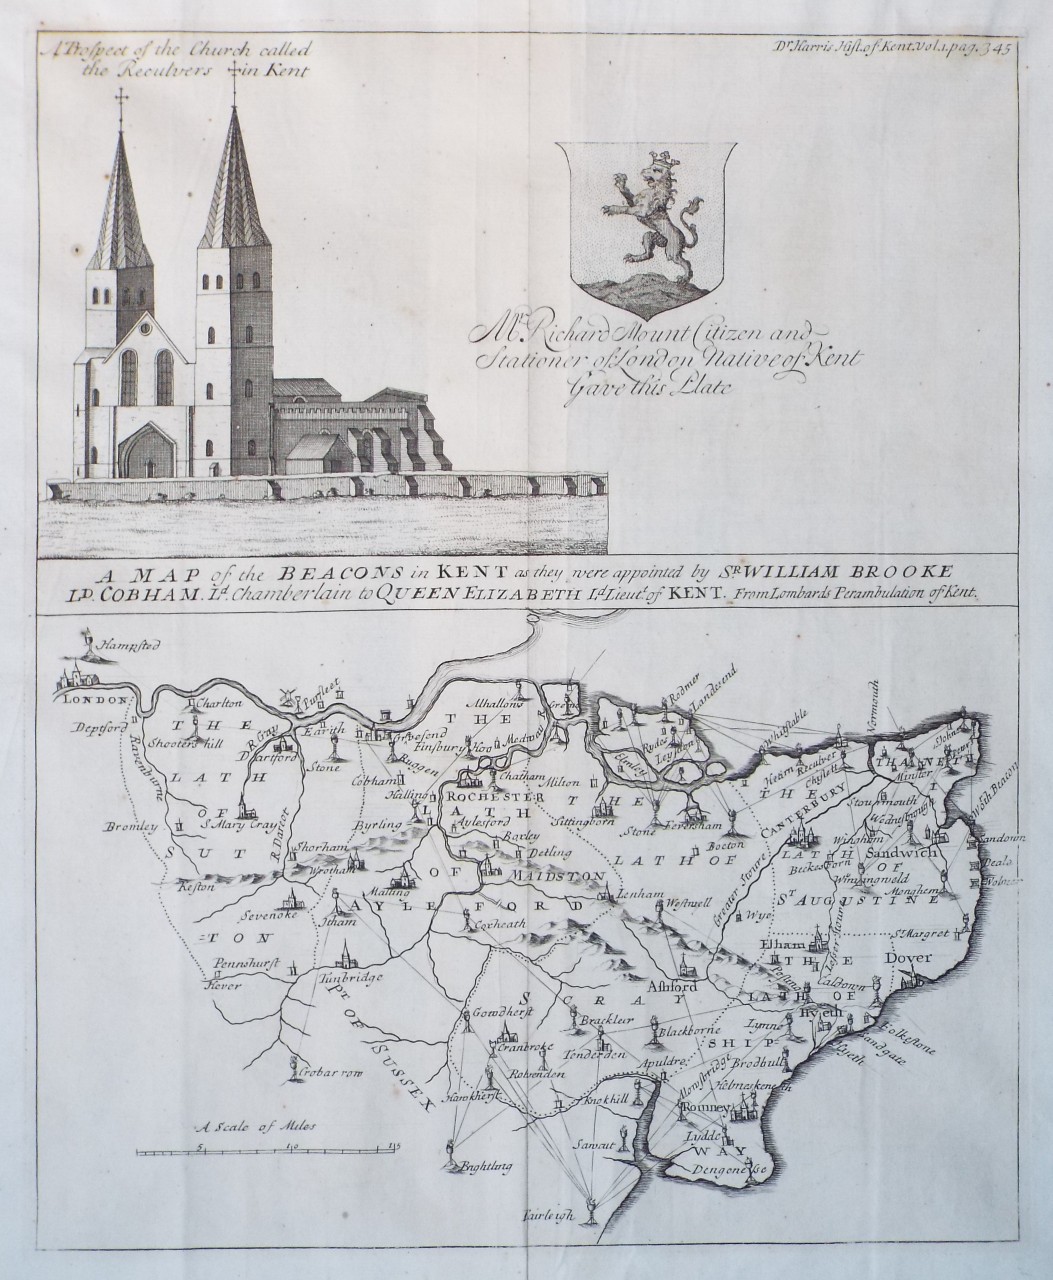 A Prospect of the Church called
the Reculvers in Kent
Dr. Harris Hist. of Kent. vol. 1. pag. 345
Mr. Richard Mount Citizen and
Stationer of London Native of Kent
Gave this Plate
A MAP of the BEACONS in KENT as they were appointed by SR. WILLIAM BROOKE
LD. COBHAM. Ld. Chamberlain to QUEEN ELIZABETH Ld. Lieut. of KENT. From Lombards Perambulation of Kent.
Hampsted
LONDON
Deptford
Ravenburne
Charlton
THE
Shooters hill
LATH
OF
SUT
TON
R. Cray
Dartford
Purfleet
Earith
Stone
Gravesend
Cobham
Halling
Byrling
Bromley
S. Mary Cray
R. Darent
Shorham
Wrotham
Keston
Sevenoke
Itham
Pennshurst
Hever
Tunbridge
Pt. OF SUSSEX
Crobarrow
A Scale of Miles
5
10
15
Alhallons
THE
Finsbury
Hoo
Medway
Chatham
ROCHESTER
LATH
Aylesford
Boxley
Detling
OF
MAIDSTON
Malling
AYLEFORD
Coxheath
Lenham
Milton
THE
Sittingborn
Stone
Feversham
LATH OF
Bocton
SCRAY
Westwell
Wye
Ashford
Rydes
Leysdon
Elmley
Rodmer
Landesend
Whistable
Hearn
Reculver
Chyslet
Normouth
THANET
Minster
St. Johns
St. Peters
THE
CANTERBURY
Stourmouth
Wodnesborough
Greater Stoure
LATH
Wingham
Sandwich
OF
Beckesborn
Winyngweld
Monghem
Sandown
Deale
Wolmer
St. AUGUSTINE
St. Margret
Dover
Lesser Stour
Elham
THE
Postling
LATH OF
SHIP
WAY
Caldown
Hyeth
Folkestone
Sandgate
Hyeth
Lymne
Brodhull
Apuldre
Helmeskeneth
Romney
Lydde
Dengenesse
Gowdherst
Cranbroke
Rolvenden
Hawkherst
Tenderden
Blackborne
Knokhill
Brightling
Fairleigh